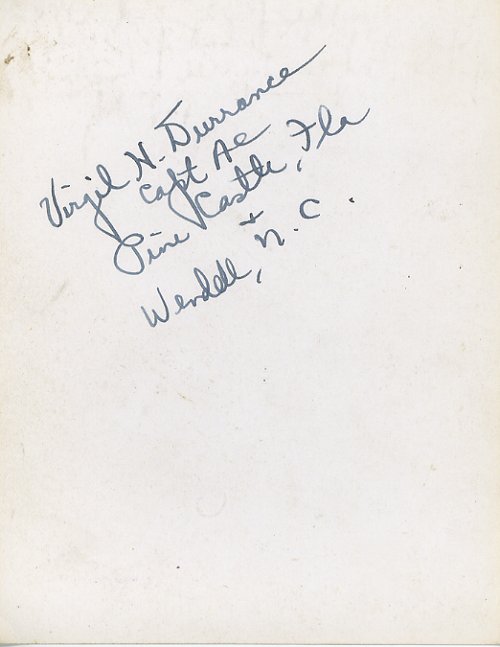 Virgil H. Durrance
Capt Ac
Pine Castle, Fla
+
Wendell, N.C.